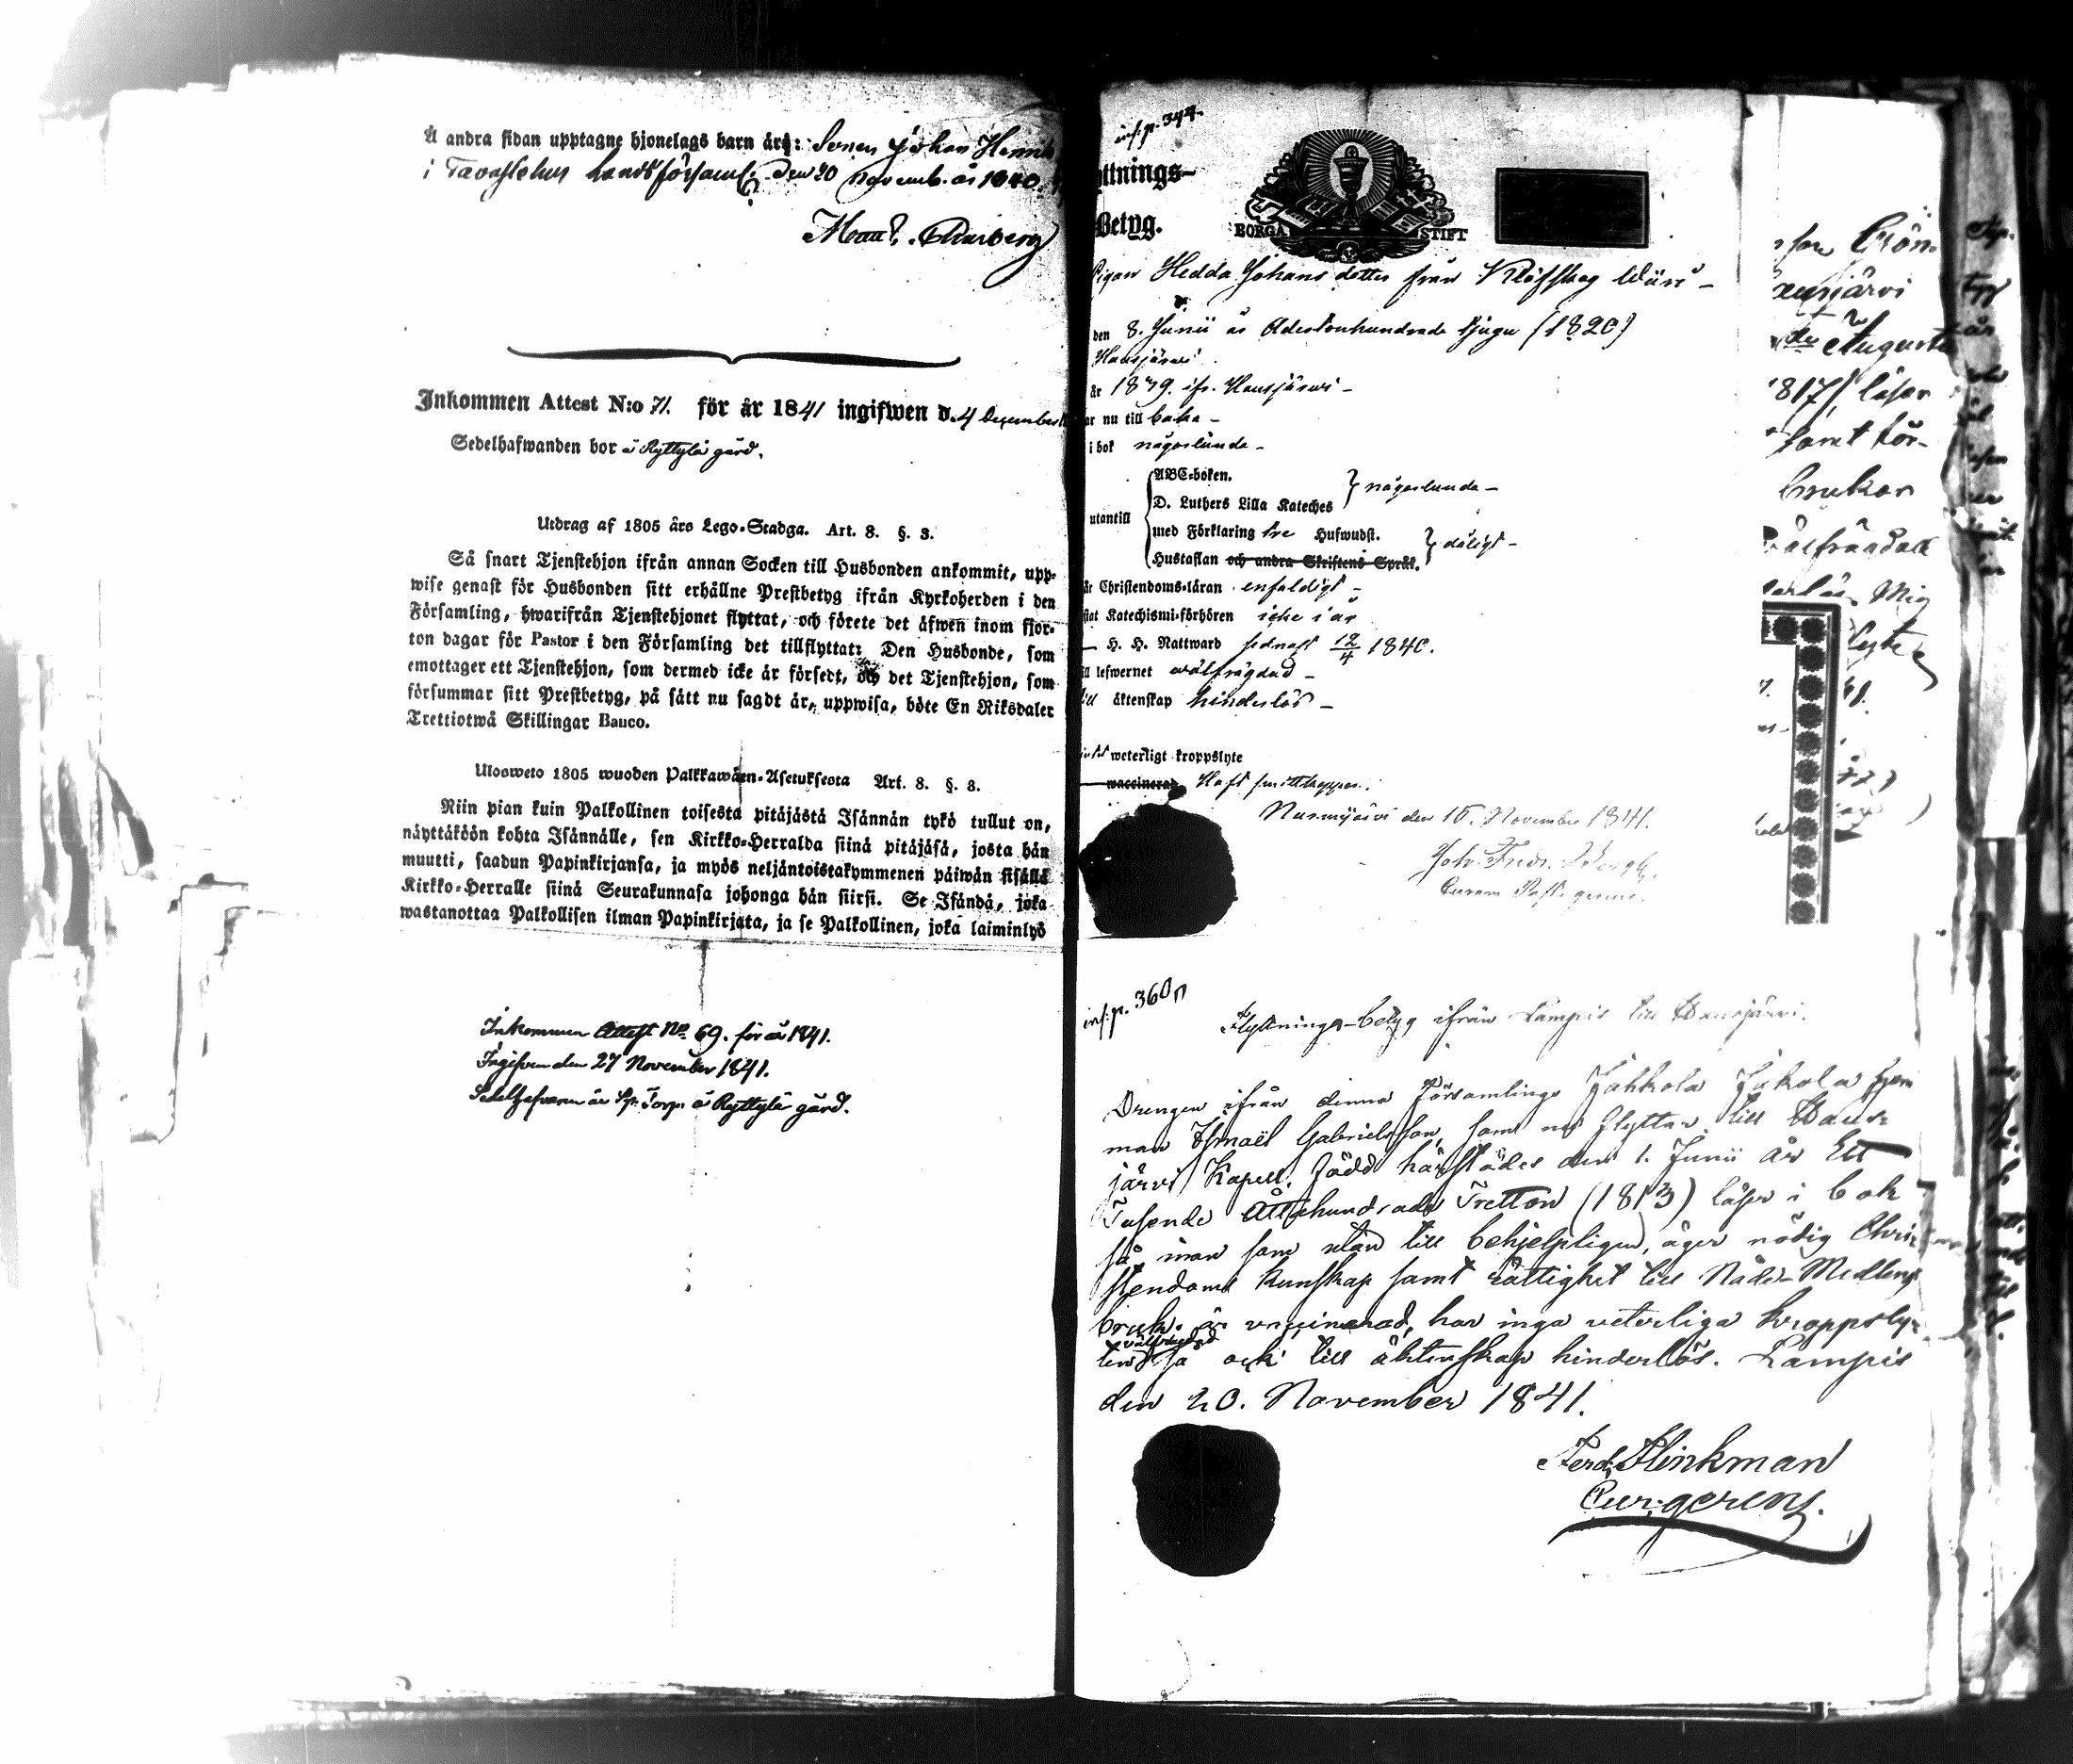 Å andra sidan upptagne hjonelags barn äro: Sonen Johan Henrik
i Tavastehus landsförsaml. den 20 novemb. år 1840.
Inkommen Attest N:o 71. för år 1841 ingifwen d. 4 December
Sedelhafwanden bor å Ryttylä gård.
Utdrag af 1805 års Lego-Stadga. Art. 8. §. 3.
Så snart Tjenstehjon ifrån annan Socken till Husbonden ankommit, upp-
wise genast för Husbonden sitt erhållne Prestbetyg ifrån Kyrkoherden i den
Församling, hwarifrån Tjenstehjonet flyttat, och förete det äfwen inom fjor-
ton dagar för Pastor i den Församling det tillflyttat: Den Husbonde, som
emottager ett Tjenstehjon, som dermed icke är försedt, och det Tjenstehjon, som
försummar sitt Prestbetyg, på sätt nu sagdt är, uppwisa, böte En Riksdaler
Trettiotwå Skillingar Banco.
Ulosweto 1805 wuoden Palkkawäen-Asetuksesta Art. 8. §. 3.
Niin pian kuin Palkollinen toisesta pitäjästä Isännän tykö tullut on,
näyttäköön kohta Isännälle, sen Kirkko-Herralda siinä pitäjäsä, josta hän
muutti, saadun Papinkirjansa, ja myös neljäntoistakymmenen päiwän sisällä
Kirkko-Herralle siinä Seurakunnasa johonga hän siirsi. Se Isändä, joka
wastanottaa Palkollisen ilman Papinkirjata, ja se Palkollinen, joka laiminlyö
Inkommen Attest No 69. för år 1841.
Ingifven den 27 November 1841.
å Ryttylä gård.
inf. p. 394.
ttnings-
Betyg.
BORGÅ STIFT
Pigan Hedda Johansdotter från Klöfskog
den 8. Junii år Adertonhundrade tjugu (1820)
Hausjärvi
år 1839. ifr. Hausjärvi –
ar nu till baka –
i bok någorlunda –
ABC-boken.
D. Luthers Lilla Kateches } någorlunda –
utantill
med Förklaring tre Hufwudst.
Hustaflan och andra Skriftens Språk. } dåligt –
är Christendoms-läran enfaldigt –
stat Katechismi-förhören icke i år
– H. H. Nattward sednast 12/4 1840.
ill lefwernet wälfrägdad –
till äktenskap hinderlös –
weterligt kroppslyte
waccinerad Haft smittkoppor.
Nurmijärvi den 15. November 1841.
Joh. Fredr. Bergh.
Curam Past. gerens.
inf. p. 360
Flyttnings-betyg ifrån Lampis till Hausjärvi.
Drengen ifrån denna Församlings Jahkola Jakola hem
man Ismaël Gabrielsson, som nu flyttar till Haus-
järvi Kapell, född härstädes den 1. Junii år Ett
Tusende Åttahundrade Tretton (1813) läser i bok
så innan som utan till behjelpligen, äger nödig Chri-
stendoms kunskap samt rättighet till Nåde-Medlens
bruk. är vaccinerad, har inga veterliga kroppsly-
välfrägdad
ten så ock till äktenskap hinderlös. Lampis
den 20. November 1841.
Ferd. Flinkman
Cur. gerens.
1817) läser
samt för-
brukar